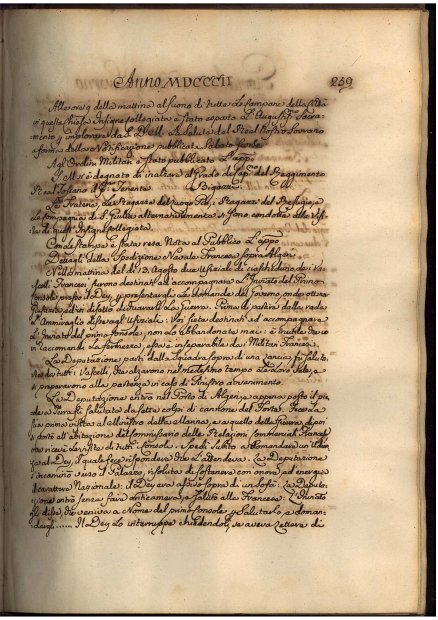 Anno MDCCCII
259
Alle ore 9 della mattina al suono di tutte le campane della Città
in questa Chiesa Insigne Collegiata è stato esposto l'Augustissº Sacra-
mento, p implorare da la salute del Real Nostro Sovrano
a forma della Notificazione pubblicata Sabato scorso
Agl'Ordini Militari è stato pubblicato l'appº
S. M. si è degnato di inalzare al grado di Capnº del Reggimento
Rl Toscano il Tenente Bigazzi
La Fraterna, le Ragazze del luogo Pio, i Ragazzi del Refugio, e
la Compagnia di S. Giulia alternativamente si sono condotti alla Visi-
ta di quest'Insigne Collegiata
Con le Stampe è stata resa Nota al Pubblico l'appº
Dettagli della Spedizione Navale Francese sopra Algeri
Nella mattina del dì 13 Agosto due uffiziali di ciascheduno dei Va-
scelli Francesi furono destinati ad accompagnare l'Inviato del Primo
Console presso il Dey, e presentargli le domande del Governo, onde ottener
giustizia ed in difetto dichiarargli la Guerra. Prima di partire dalla rada
l'Ammiraglio disse agl'Uffiziali: Voi siete destinati ad accompagnare
l'Inviato del primo Console; non lo abbandonate mai: è inutile che io
vi raccomandi la fermezza, essa è inseparabile dai Militari Francesi.
La Deputazione partì dalla Squadra sopra di una lancia, fù saluta-
ta da tutti i Vascelli, che alzarono nel medesimo tempo le loro Vele, e
si prepararono alla partenza in caso di sinistro avvenimento.
La Deputazione entrò nel Porto di Algeri, e appena posto il pie-
de a Terra fù salutata da sette colpi di cannone del Forte. Fece la
sua prima visita al Ministro della Marina, e a quello della Guerra, di poi
si portò all'abitazione del Commissario delle Relazioni Commerciali France-
si, ove ricevè le visite di tutti i Consoli. Spedì subito a domandare un'Udien-
za al Dey, il quale fece rispondere che l'attendeva. La Deputazione
s'incamminò verso il Palazzo, risoluta di sostenere con onore, ed energia
il carattere Nazionale: il Dey era assiso sopra di un Sofà: la Deputa-
zione entrò senza fare anticamera, e salutò alla Francese: l'Inviato
gli disse, che veniva a Nome del primo Console, p salutarlo, e doman-
dargli...... Il Dey lo interruppe chiedendoli, se aveva lettere di